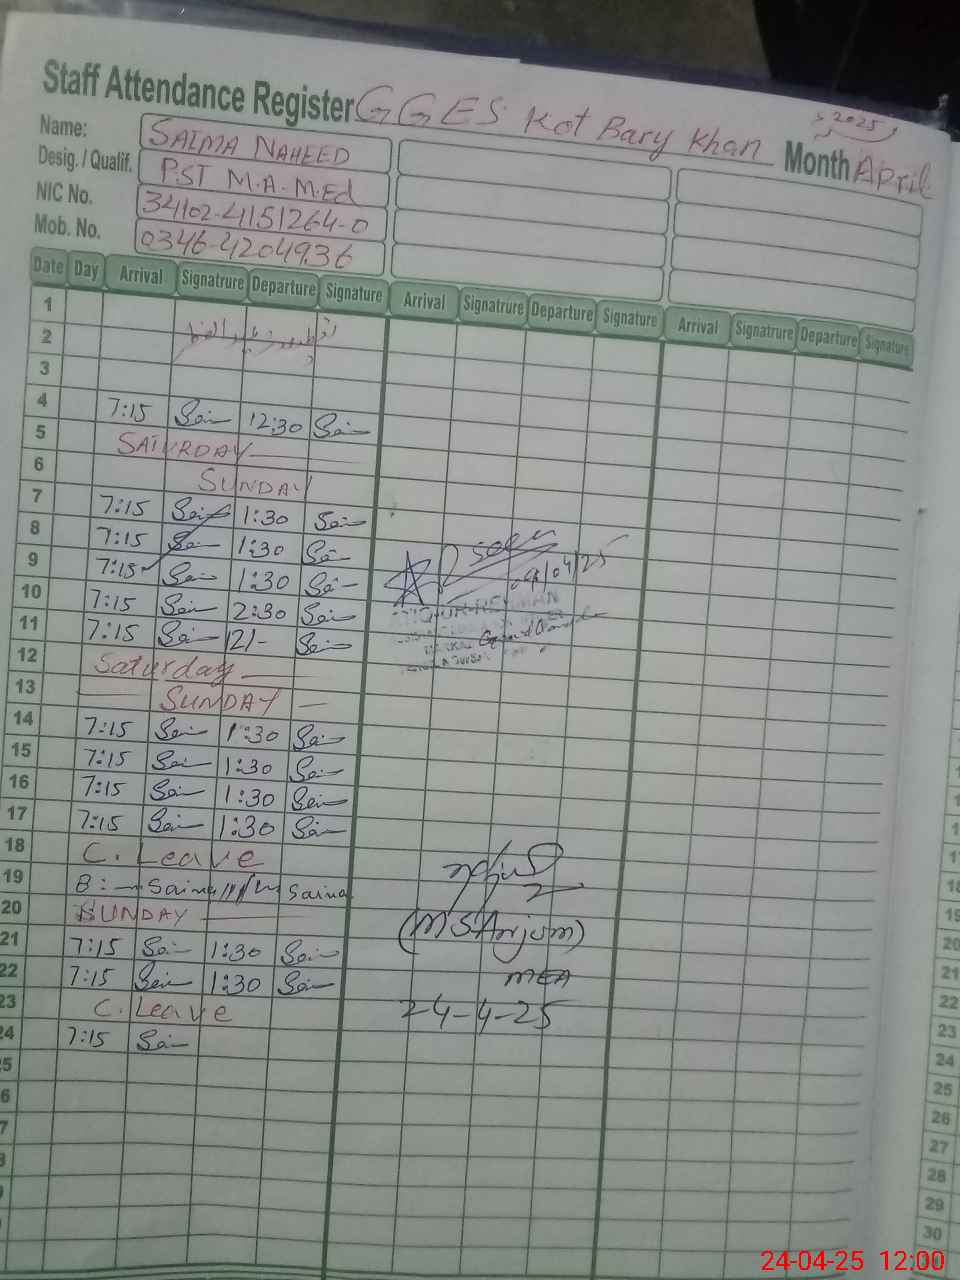 Staff Attendance Register GGES Kot Bary Khan Month April 2025
Name: SAIMA NAHEED
Desig. / Qualif. PST M.A. M.Ed
NIC No. 34102-4151264-0
Mob. No. 0346-4204936
Date Day Arrival Signatrure Departure Signature Arrival Signatrure Departure Signature Arrival Signatrure Departure Signature
1
2
3
4 7:15 12:30
5 SATURDAY
6 SUNDAY
7 7:15 1:30
8 7:15 1:30
9 7:15 1:30
10 7:15 2:30
11 7:15 12/-
12 Saturday
13 SUNDAY
14 7:15 1:30
15 7:15 1:30
16 7:15 1:30
17 7:15 1:30
18 C. Leave
19 8:- Saima Saima
20 SUNDAY
21 7:15 1:30
22 7:15 1:30
23 C. Leave
24 7:15
/04/25
ATIQ-UR-REHMAN
(M S Anjum)
MEA
24-4-25
24-04-25 12:00